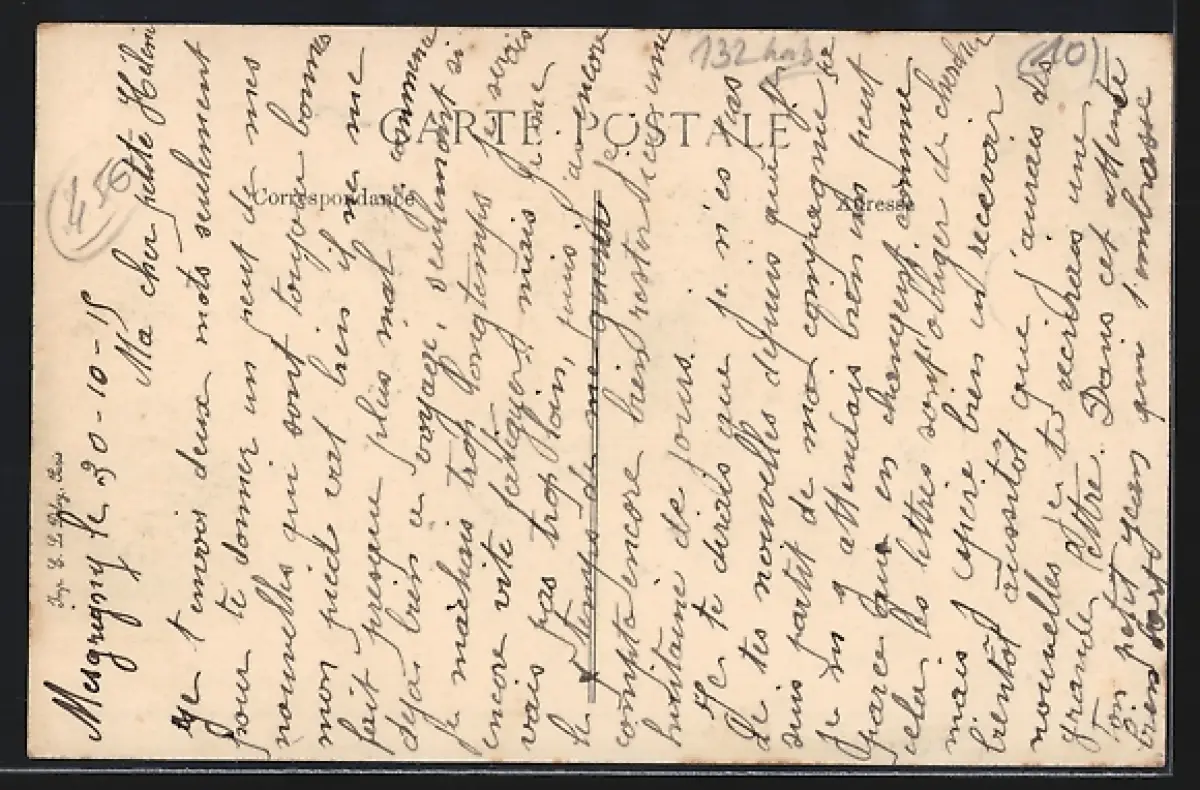 CARTE POSTALE
Correspondance
Adresse
132 hab
(10)
Mesgrigny le 30-10-15
Ma cher petite Hélène
Je t'envois deux mots seulement
pour te donner un peut de mes
nouvelles qui sont toujour bonnes
mon pied vat bien il ne me
fait presque plus mal commence
dejas bien a voyagé, seulement si
je marchais trop longtemps je serais
encore vite fatiguer mais je ne
vais pas trop loin, puis j'ai encore
le temps de me guérir je
compte encore bien rester ici une
huitaine de jours.
Je te dirais que je n'es pas
de tes nouvelles depuis que je
suis partit de ma compagnie
je m'y attendais bien un peut
parce que en changent comme
cela les lettres sont obliger de chercher
mais j'espère bien en recevoir
bientôt aussitôt que j'aurais des
nouvelles je te recrirais une
grande lettre. Dans cet attente
Ton petit qui t'embrasse
bien fort